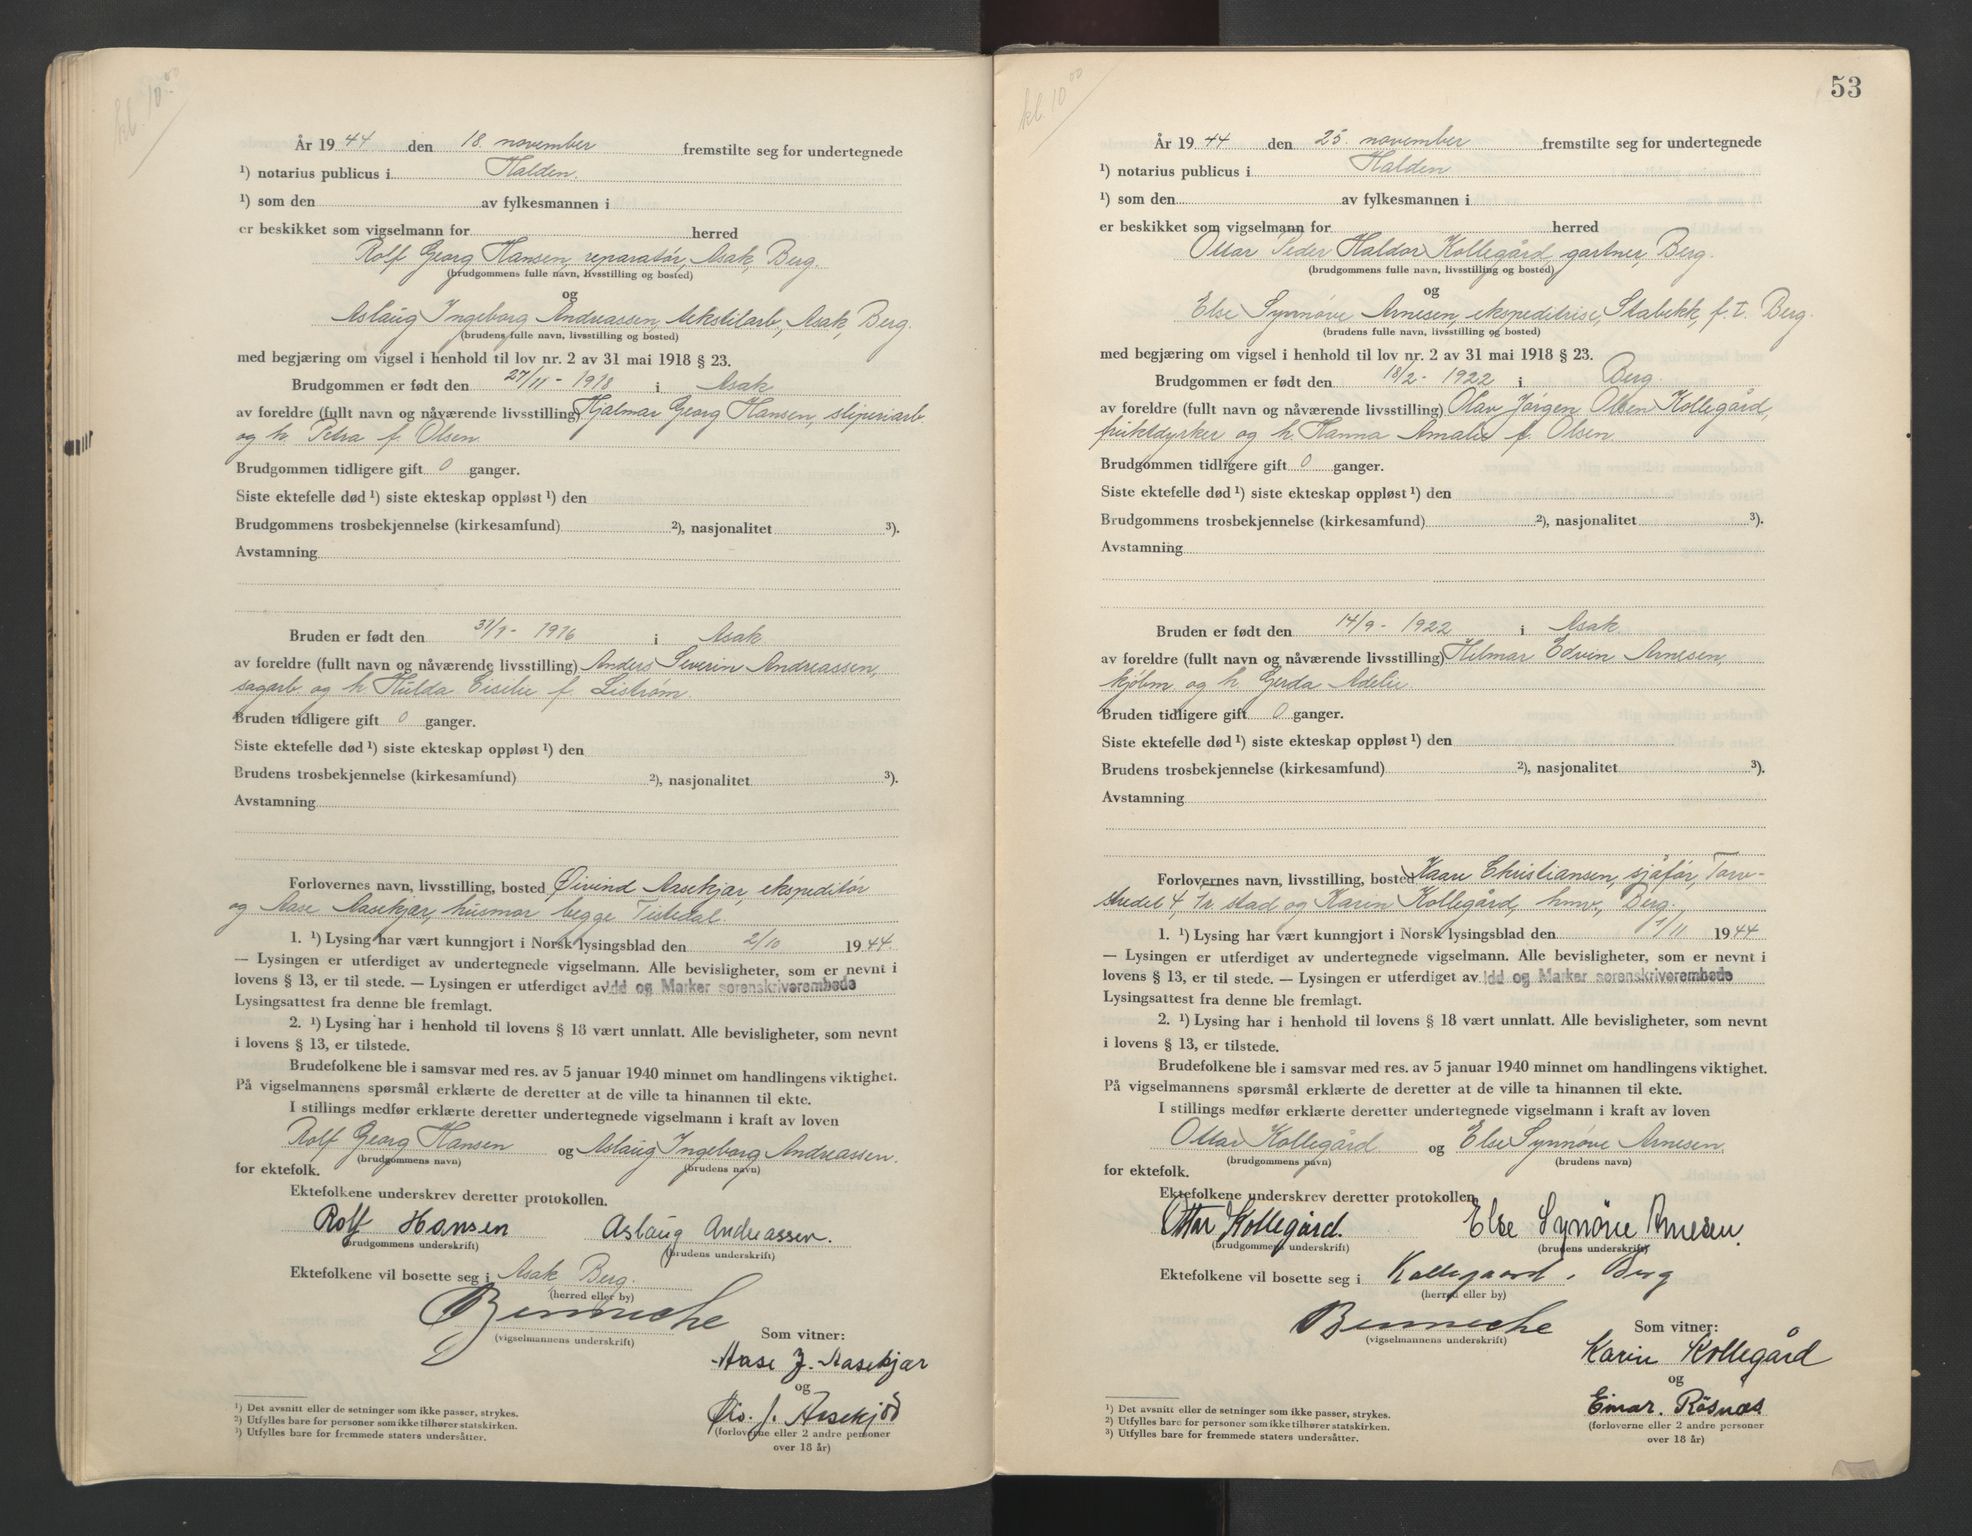 kl. 10.00
År 1944 den 18. november fremstilte seg for undertegnede
¹) notarius publicus i Halden.
¹) som den av fylkesmannen i
er beskikket som vigselmann for herred
Rolf Georg Hansen, reparatør, Asak, Berg.
(brudgommens fulle navn, livsstilling og bosted)
og
Aslaug Ingeborg Andreassen, tekstilarb, Asak, Berg.
(brudens fulle navn, livsstilling og bosted)
med begjæring om vigsel i henhold til lov nr. 2 av 31 mai 1918 § 23.
Brudgommen er født den 27/11 - 1918 i Asak
av foreldre (fullt navn og nåværende livsstilling) Hjalmar Georg Hansen, sliperiarb
og h. Petra f. Olsen
Brudgommen tidligere gift 0 ganger.
Siste ektefelle død ¹) siste ekteskap oppløst ¹) den
Brudgommens trosbekjennelse (kirkesamfund) ²), nasjonalitet ³).
Avstamning
Bruden er født den 31/1 - 1916 i Asak
av foreldre (fullt navn og nåværende livsstilling) Anders Severin Andreassen,
sagarb og h. Hulda Cisilie f. Liström.
Bruden tidligere gift 0 ganger.
Siste ektefelle død ¹) siste ekteskap oppløst ¹) den
Brudens trosbekjennelse (kirkesamfund) ²), nasjonalitet ³).
Avstamning
Forlovernes navn, livsstilling, bosted Øivind Aasekjær, ekspeditør
og Aase Aasekjær, husmor begge Tistedal.
1. ¹) Lysing har vært kunngjort i Norsk lysingsblad den 2/10 1944.
— Lysingen er utferdiget av undertegnede vigselmann. Alle bevisligheter, som er nevnt i
lovens § 13, er til stede. — Lysingen er utferdiget av Idd og Marker sorenskriverembede
Lysingsattest fra denne ble fremlagt.
2. ¹) Lysing har i henhold til lovens § 18 vært unnlatt. Alle bevisligheter, som nevnt
i lovens § 13, er tilstede.
Brudefolkene ble i samsvar med res. av 5 januar 1940 minnet om handlingens viktighet.
På vigselmannens spørsmål erklærte de deretter at de ville ta hinannen til ekte.
I stillings medfør erklærte deretter undertegnede vigselmann i kraft av loven
Rolf Georg Hansen og Aslaug Ingeborg Andreassen.
(brudgommens navn) (brudens navn)
for ektefolk.
Ektefolkene underskrev deretter protokollen.
Rolf Hansen Aslaug Andreassen.
(brudgommens underskrift) (brudens underskrift)
Ektefolkene vil bosette seg i Asak, Berg.
(herred eller by)
Benneche
(vigselmannens underskrift)
Som vitner:
Aase J. Aasekjær
og
Øiv. J. Aasekjær
(forloverne eller 2 andre personer
over 18 år)
¹) Det avsnitt eller de setninger som ikke passer, strykes.
²) Utfylles bare for personer som ikke tilhører statskirken.
³) Utfylles bare for fremmede staters undersåtter.
53
kl. 10.00
År 1944 den 25. november fremstilte seg for undertegnede
¹) notarius publicus i Halden
¹) som den av fylkesmannen i
er beskikket som vigselmann for herred
Ottar Peder Haldor Kollegård, gartner, Berg.
(brudgommens fulle navn, livsstilling og bosted)
og
Else Synnøve Arnesen, ekspeditrise, Stabekk, f.t. Berg.
(brudens fulle navn, livsstilling og bosted)
med begjæring om vigsel i henhold til lov nr. 2 av 31 mai 1918 § 23.
Brudgommen er født den 18/2 - 1922 i Berg.
av foreldre (fullt navn og nåværende livsstilling) Olav Jørgen Olsen Kollegård,
fruktdyrker og h. Hanna Amalie f. Olsen
Brudgommen tidligere gift 0 ganger.
Siste ektefelle død ¹) siste ekteskap oppløst ¹) den
Brudgommens trosbekjennelse (kirkesamfund) ²), nasjonalitet ³).
Avstamning
Bruden er født den 14/9 - 1922 i Asak
av foreldre (fullt navn og nåværende livsstilling) Hilmar Edvin Arnesen,
kjøbm og h. Gerda Adelie.
Bruden tidligere gift 0 ganger.
Siste ektefelle død ¹) siste ekteskap oppløst ¹) den
Brudens trosbekjennelse (kirkesamfund) ²), nasjonalitet ³).
Avstamning
Forlovernes navn, livsstilling, bosted Kaare Christiansen, sjåfør, Torv-
stredet 4, Fr. stad og Karen Kollegård, hmv., Berg.
1. ¹) Lysing har vært kunngjort i Norsk lysingsblad den 1/11 1944
— Lysingen er utferdiget av undertegnede vigselmann. Alle bevisligheter, som er nevnt i
lovens § 13, er til stede. — Lysingen er utferdiget av Idd og Marker sorenskriverembede
Lysingsattest fra denne ble fremlagt.
2. ¹) Lysing har i henhold til lovens § 18 vært unnlatt. Alle bevisligheter, som nevnt
i lovens § 13, er tilstede.
Brudefolkene ble i samsvar med res. av 5 januar 1940 minnet om handlingens viktighet.
På vigselmannens spørsmål erklærte de deretter at de ville ta hinannen til ekte.
I stillings medfør erklærte deretter undertegnede vigselmann i kraft av loven
Ottar Kollegård og Else Synnøve Arnesen.
(brudgommens navn) (brudens navn)
for ektefolk.
Ektefolkene underskrev deretter protokollen.
Ottar Kollegård. Else Synöve Arnesen.
(brudgommens underskrift) (brudens underskrift)
Ektefolkene vil bosette seg i Kollegaard, Berg
(herred eller by)
Benneche
(vigselmannens underskrift)
Som vitner:
Karin Kollegård
og
Einar. Røsnæs
(forloverne eller 2 andre personer
over 18 år)
¹) Det avsnitt eller de setninger som ikke passer, strykes.
²) Utfylles bare for personer som ikke tilhører statskirken.
³) Utfylles bare for fremmede staters undersåtter.